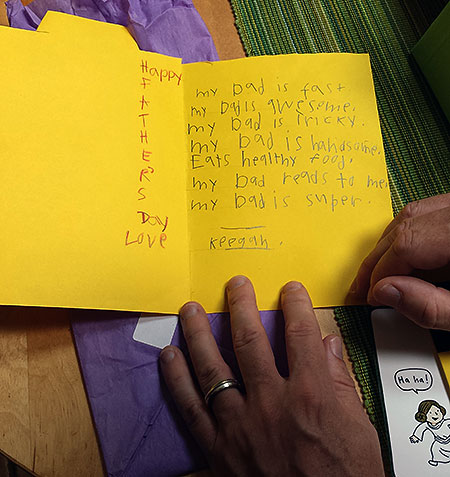 Happy
F
A
T
H
E
R'
S
Day
Love
my Dad is fast
my Dad is awesome.
my Dad is tricky.
my Dad is handsome.
Eats healthy food.
my Dad reads to me.
my Dad is super.
keegan.
Ha ha!